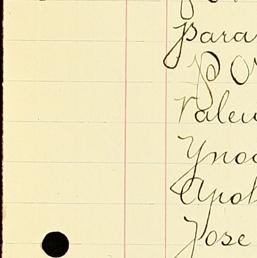 Para
PO
Valeu
Ynoc
Apol
Jose